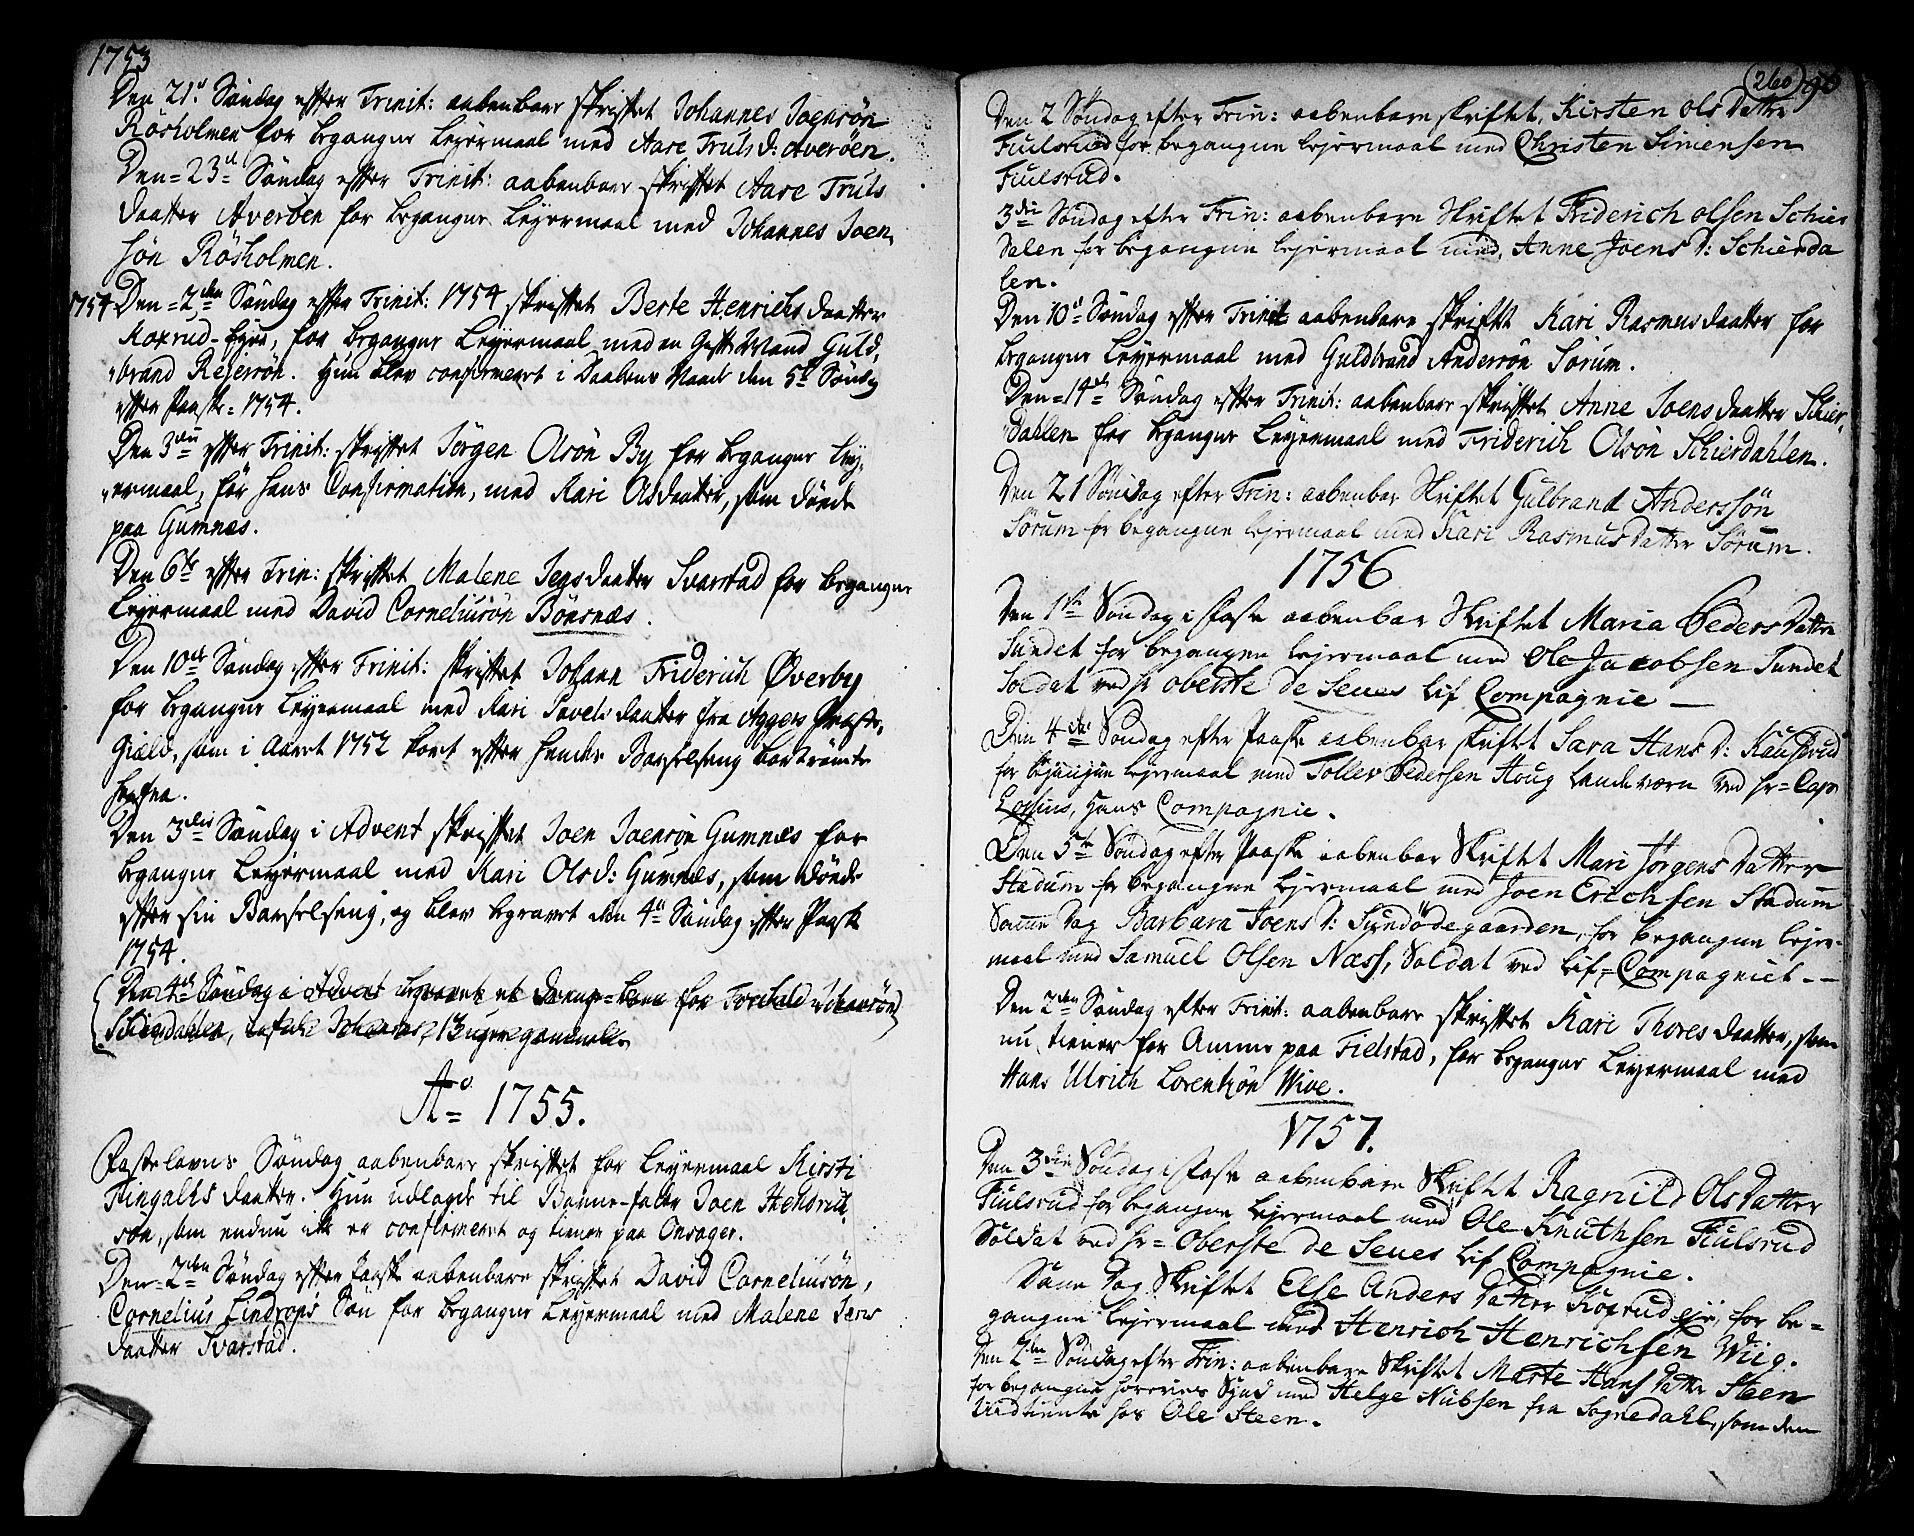 1753
Den 21de Søndag efter Trinit: aabenbare skriftet Johannes Joensøn
Røsholmen for begangne Leyermaal med Aase Truls D: Averøen.
Den = 23de Søndag efter Trinit: aabenbare skriftet Aase Truls
daatter Averøen for begangne Leyermaal med Johannes Joen,
søn Røsholmen.
1754 Den = 2den Søndag efter Trinit: 1754 skriftet Berte Henrichs daatter
Moxrud-Eye, for begangne Leyermaal med en Gift Mand Guld,
"brand Rejersøn. Hun blev confirmeret i Daabens Naade den 5te Sønd:
efter Paaske = 1754.
Den 3die efter Trinit: skriftet Jørgen Olsøn By for begangne Ley,
"ermaal, før hans Confirmation, med Kari Olsdaatter, som døde
paa Gumnæs.
Den 6te efter Trin: skriftet Malene Jensdaatter Svarstad for begangne
Leyermaal med David Corneliusøn Bønsnæs.
Den 10de Søndag efter Trinit: skriftet Johann Friderich Øverby
for begangne Leyermaal med Kari Povels daatter fra Aggers Præste,
Gield, som i Aaret 1752 kort efter hendes Barselseng bortrømte
herfra.
Den 3die Søndag i Advent skriftet Joen Joensøn Gumnæs for
begangne Leyermaal med Kari Ols D: Gumnæs, som døde
efter sin Barselseng, og blev begravet den 4de Søndag efter Paaske
1754.
(Den 4de Søndag i Advent begravet et Drenge-barn for
Schierdahlen, Johannes, 13 uger gammel.
Ao 1755.
Fastelavns Søndag aabenbare skriftet for Leyermaal Kirsti
Fingalls daatter. Hun udlagde til Barne-fader Joen Hendrich
søn, som endnu ikke er confirmeret og tiener paa Onsager.
Den = 2den Søndag efter Paaske aabenbare skriftet David Corneliusøn,
Cornelius Lindrops Søn for begangne Leyermaal med Malene Jens
daatter Svarstad.
260 96
Den 2 Søndag efter Trin: aabenbare skriftet, Kirsten Ols Datter
Fiulsrud for begangne Lejermaal med Christen Simensen
Fiulsrud.
3die Søndag efter Trin: aabenbare Skriftet Friderich Olsen Schier
dalen for begangne Lejermaal med, Anne Joens D: Schierda
len.
Den 10de Søndag efter Trinit aabenbare skriftet Kari Rasmusdaatter for
begangne Leyermaal med Guldbrand Andersøn Sørum.
Den = 14de Søndag efter Trinit: aabenbare skriftet Anne Joens daatter Schier,
"dahlen for begangne Leyermaal med Friderich Olsøn Schierdahlen.
Den 21 Søndag efter Trin: aabenbar Skriftet Gulbrand Anderssøn
Sørum for begangne Lejermaal med Kari Rasmus Datter Sørum.
1756
Den 1ste Søndag i Faste aabenbar Skriftet Maria Peders Datter
Sundet for begangne Lejermaal med Ole Jacobsen Sundet
Soldat ved Hr Oberste de Seues Lif Compagnie —
Den 4de Søndag efter Paaske aabenbar skriftet Sara Hans D: Kausrud
for begangne Lejermaal med Tollev Pedersen Houg Landeværn ved Hr = Cap
Lossius, Hans Compagnie.
Den 5te Søndag efter Paaske aabenbar Skriftet Mari Jørgens Datter
Stadum for begangne Lejermaal med Joen Erichsen Stadum
Samme Dag Barbara Joens D: Syndødegaarden, for begangne Lejer-
maal med Samuel Olsen Næss, Soldat ved Lif = Compagniet - -
Den 2den Søndag efter Trinit: aabenbare skriftet Kari Thores daatter, som
nu tiener for Amme paa Fielstad, for begangne Leyermaal med
Hans Ulrich Lorentzøn Wive.
1757.
Den 3die Søndag i Faste aabenbare Skriftet Ragnild Ols Datter
Fiulsrud for begangne Lejermaal med Ole Knuthsen Fiulsrud
Soldat ved Hr = Oberste de Seues Lif Compagnie.
Same Dag Skriftet Else Anders Datter Koxrud eje, for be=
gangne Lejermaal med Henrich Henrichsen Wiig.
Den 2den Søndag efter Trin: aabenbare Skriftet Marte Hans Datter Steen
for begangne Horeries Synd med Helge Nubsen fra Sognedahl, som den
tiid tiente hos Ole Steen.